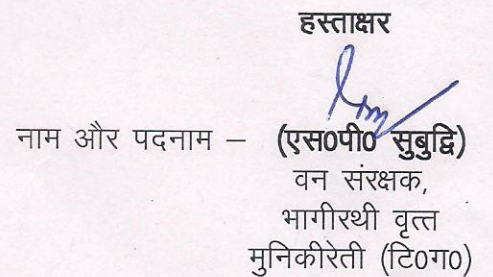 हस्ताक्षर
नाम और पदनाम – (एस0पी0 सुबुद्वि)
वन संरक्षक,
भागीरथी वृत्त
मुनिकीरेती (टि0ग0)